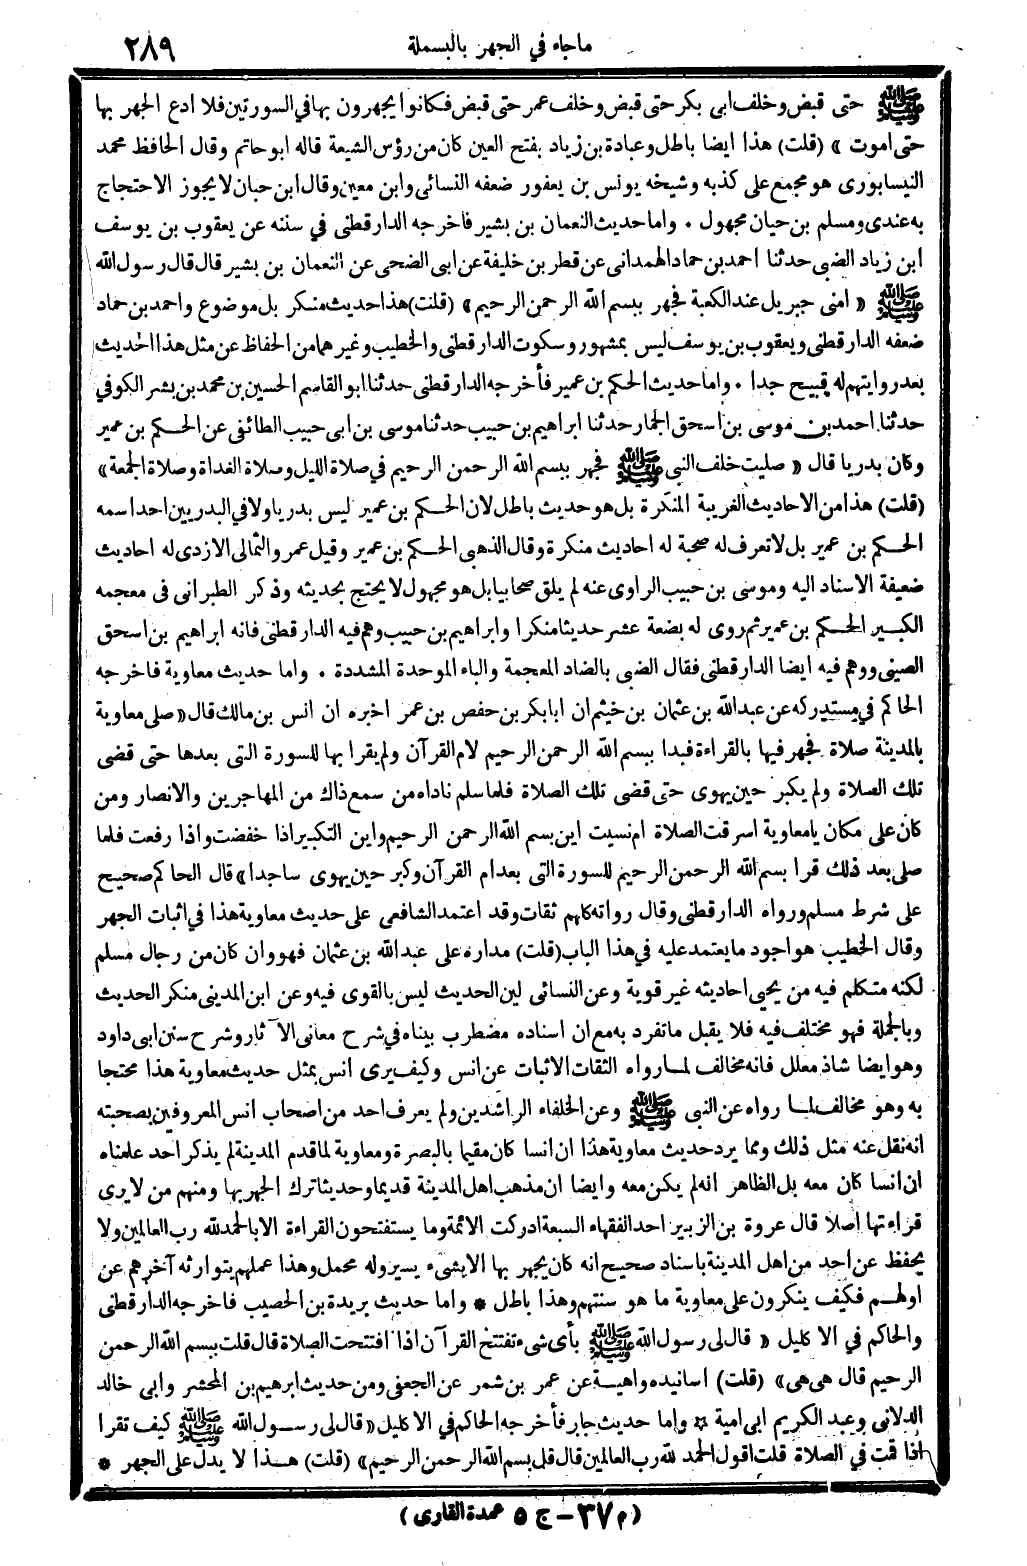 ماجاء في الجهر بالبسملة ٢٨٩
ﷺ حتى قبض وخلف ابى بكر حتى قبض وخلف عمر حتى قبض فكانوا يجهرون بها في السورتين فلا ادع الجهر بها
حتى اموت » (قلت) هذا ايضا باطل وعبادة بن زياد بفتح العين كان من رؤس الشيعة قاله ابو حاتم وقال الحافظ محمد
النيسابورى هو مجمع على كذبه وشيخه يونس بن يعفور ضعفه النسائى وابن معين وقال ابن حبان لا يجوز الاحتجاج
به عندى ومسلم بن حيان مجهول ٠ واما حديث النعمان بن بشير فاخرجه الدارقطنى في سننه عن يعقوب بن يوسف
ابن زياد الضبى حدثنا احمد بن حماد الهمدانى عن قطر بن خليفة عن ابى الضحى عن النعمان بن بشير قال قال رسول الله
ﷺ « امنى جبريل عند الكعبة فجهر ببسم الله الرحمن الرحيم » (قلت) هذا حديث منكر بل موضوع واحمد بن حماد
ضعفه الدارقطنى ويعقوب بن يوسف ليس بمشهور وسكوت الدارقطنى والخطيب وغيرهما من الحفاظ عن مثل هذا الحديث
بعد روايتهم له قبيح جدا ٠ واما حديث الحكم بن عمير فأخرجه الدارقطنى حدثنا ابو القاسم الحسين بن محمد بن بشر الكوفي
حدثنا احمد بن موسى بن اسحق الحمار حدثنا ابراهيم بن حبيب حدثنا موسى بن ابى حبيب الطائفى عن الحكم بن عمير
وكان بدريا قال « صليت خلف النبى ﷺ فجهر ببسم الله الرحمن الرحيم في صلاة الليل وصلاة الغداة وصلاة الجمعة »
(قلت) هذا من الاحاديث الغريبة المنكرة بل هو حديث باطل لان الحكم بن عمير ليس بدريا ولا في البدريين احد اسمه
الحكم بن عمير بل لا تعرف له صحبة له احاديث منكرة وقال الذهبى الحكم بن عمير وقيل عمرو الثمالى الازدى له احاديث
ضعيفة الاسناد اليه وموسى بن حبيب الراوى عنه لم يلق صحابيا بل هو مجهول لا يحتج بحديثه وذكر الطبرانى فى معجمه
الكبير الحكم بن عمير ثم روى له بضعة عشر حديثا منكرا وابراهيم بن حبيب وهم فيه الدارقطنى فانه ابراهيم بن اسحق
الصينى ووهم فيه ايضا الدارقطنى فقال الضبى بالضاد المعجمة والباء الموحدة المشددة ٠ واما حديث معاوية فاخرجه
الحاكم في مستدركه عن عبد الله بن عثمان بن خيثم ان ابا بكر بن حفص بن عمر اخبره ان انس بن مالك قال « صلى معاوية
بالمدينة صلاة فجهر فيها بالقراءة فبدا ببسم الله الرحمن الرحيم لام القرآن ولم يقرا بها للسورة التى بعدها حتى قضى
تلك الصلاة ولم يكبر حين يهوى حتى قضى تلك الصلاة فلما سلم ناداه من سمع ذاك من المهاجرين والانصار ومن
كان على مكان يا معاوية اسرقت الصلاة ام نسيت اين بسم الله الرحمن الرحيم واين التكبير اذا خفضت واذا رفعت فلما
صلى بعد ذلك قرا بسم الله الرحمن الرحيم للسورة التى بعد ام القرآن وكبر حين يهوى ساجدا » قال الحاكم صحيح
على شرط مسلم ورواه الدارقطنى وقال رواته كلهم ثقات وقد اعتمد الشافعى على حديث معاوية هذا في اثبات الجهر
وقال الخطيب هو اجود ما يعتمد عليه في هذا الباب (قلت) مداره على عبد الله بن عثمان فهو وان كان من رجال مسلم
لكنه متكلم فيه من يحيى احاديثه غير قوية وعن النسائى لين الحديث ليس بالقوى فيه وعن ابن المدينى منكر الحديث
وبالجملة فهو مختلف فيه فلا يقبل ما تفرد به مع ان اسناده مضطرب بيناه في شرح معانى الآثار وشرح سنن ابى داود
وهو ايضا شاذ معلل فانه مخالف لما رواه الثقات الاثبات عن انس وكيف يرى انس بمثل حديث معاوية هذا محتجا
به وهو مخالف لما رواه عن النبى ﷺ وعن الخلفاء الراشدين ولم يعرف احد من اصحاب انس المعروفين بصحبته
انه نقل عنه مثل ذلك ومما يرد حديث معاوية هذا ان انسا كان مقيما بالبصرة ومعاوية لما قدم المدينة لم يذكر احد علمناه
ان انسا كان معه بل الظاهر انه لم يكن معه وايضا ان مذهب اهل المدينة قديما وحديثا ترك الجهر بها ومنهم من لا يرى
قراءتها اصلا قال عروة بن الزبير احد الفقهاء السبعة ادركت الائمة وما يستفتحون القراءة الا بالحمد لله رب العالمين ولا
يحفظ عن احد من اهل المدينة باسناد صحيح انه كان يجهر بها الا بشىء يسير وله محمل وهذا عملهم يتوارثه آخرهم عن
اولهم فكيف ينكرون على معاوية ما هو سنتهم وهذا باطل * واما حديث بريدة بن الحصيب فاخرجه الدارقطنى
والحاكم في الاكليل « قال لى رسول الله ﷺ بأى شىء تفتتح القرآن اذا افتتحت الصلاة قال قلت ببسم الله الرحمن
الرحيم قال هى هى » (قلت) اسانيده واهية عن عمر بن شمر عن الجعفى ومن حديث ابرهيم بن المحشر وابى خالد
الدلانى وعبد الكريم ابى امية * واما حديث جابر فأخرجه الحاكم في الاكليل « قال لى رسول الله ﷺ كيف تقرا
اذا قمت في الصلاة قلت اقول الحمد لله رب العالمين قال قل بسم الله الرحمن الرحيم » (قلت) هذا لا يدل على الجهر *
(م ٣٧ - ج ٥ عمدة القارى)